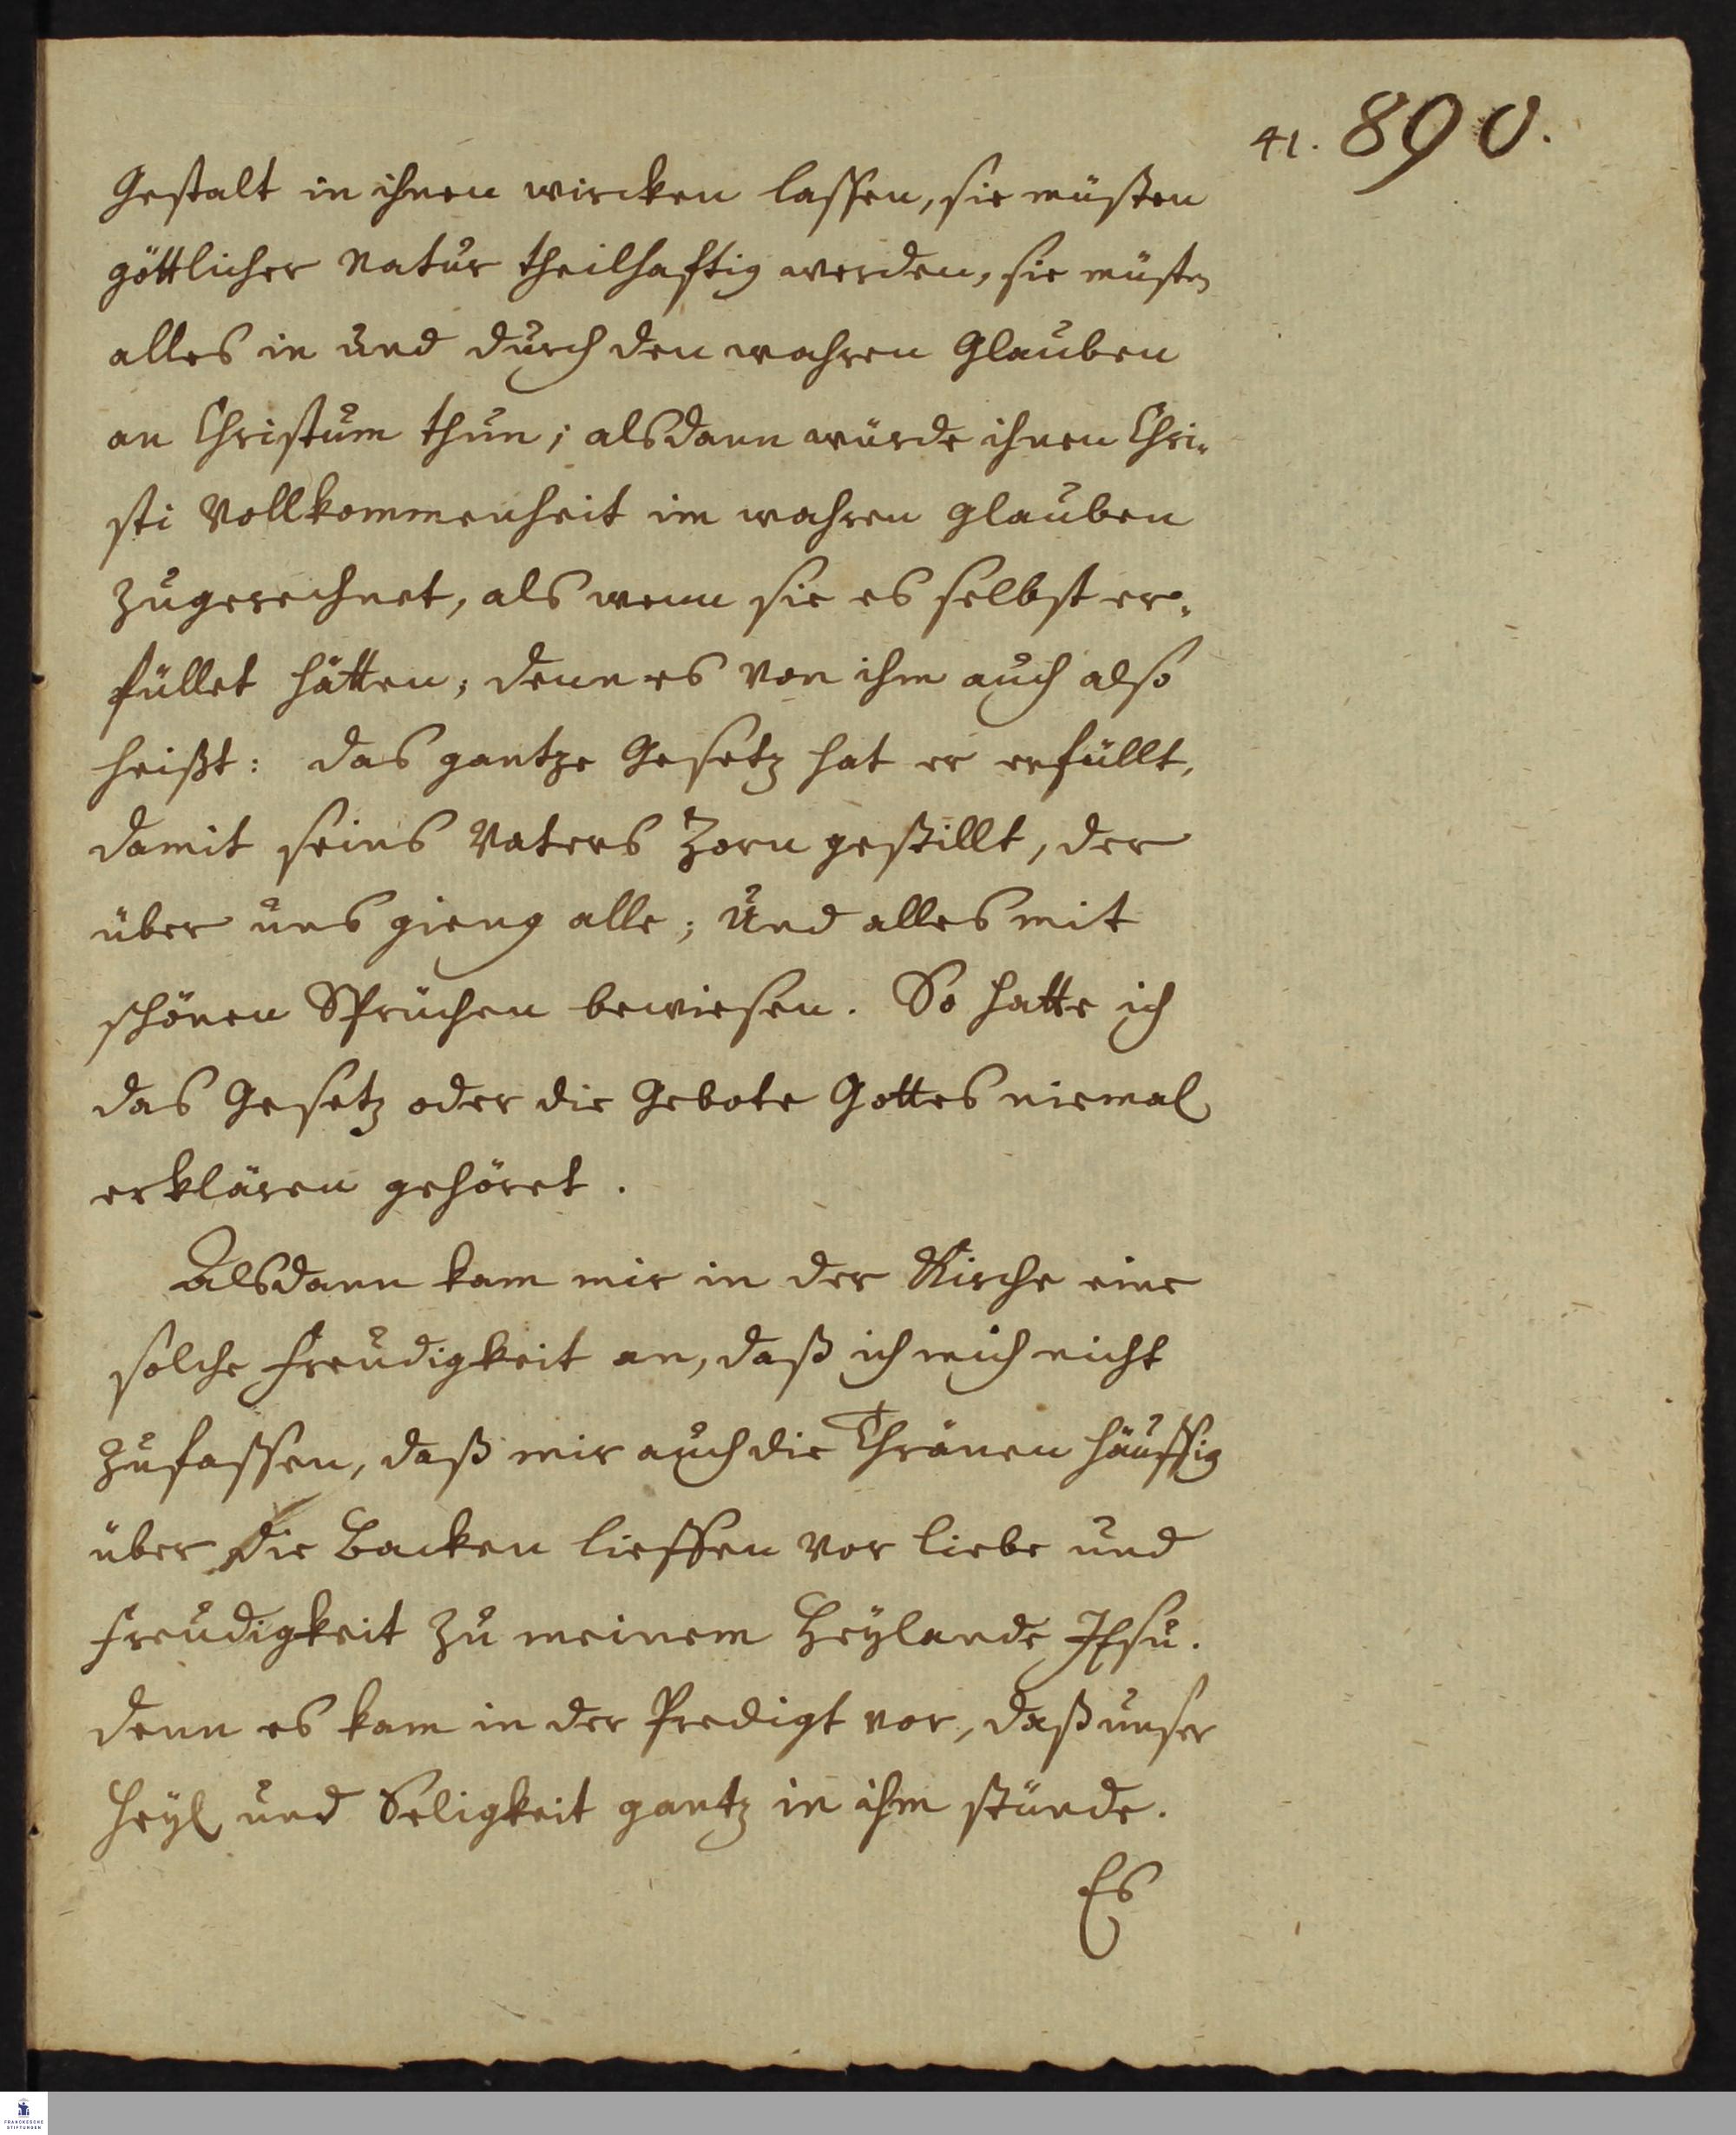 41. 890.
Gestalt in ihnen wircken lassen, sie müsten
göttlicher Natur theilhaftig werden, sie müsten
alles in und durch den wahren Glauben
an Christum thun; alsdann würde ihnen Chri-
sti Vollkommenheit im wahren glauben
zugerechnet, als wenn sie es selbst er-
füllet hätten; denn es von ihm auch also
heißt: das gantze Gesetz hat er erfüllt,
damit seins Vaters Zorn gestillt, der
über uns gieng alle; Und alles mit
schönen Sprüchen bewiesen. So hatte ich
das Gesetz oder die Gebote Gottes niemal
erklären gehöret.
Alsdann kam mir in der Kirche eine
solche Freudigkeit an, daß ich mich nicht
zufassen, daß mir auch die Thränen häuffig
über die Backen lieffen vor liebe und
Freudigkeit zu meinem Heylande JEsu.
denn es kam in der Predigt vor, daß unser
Heyl und Seligkeit gantz in ihm stünde.
Es
FRANCKESCHE
STIFTUNGEN